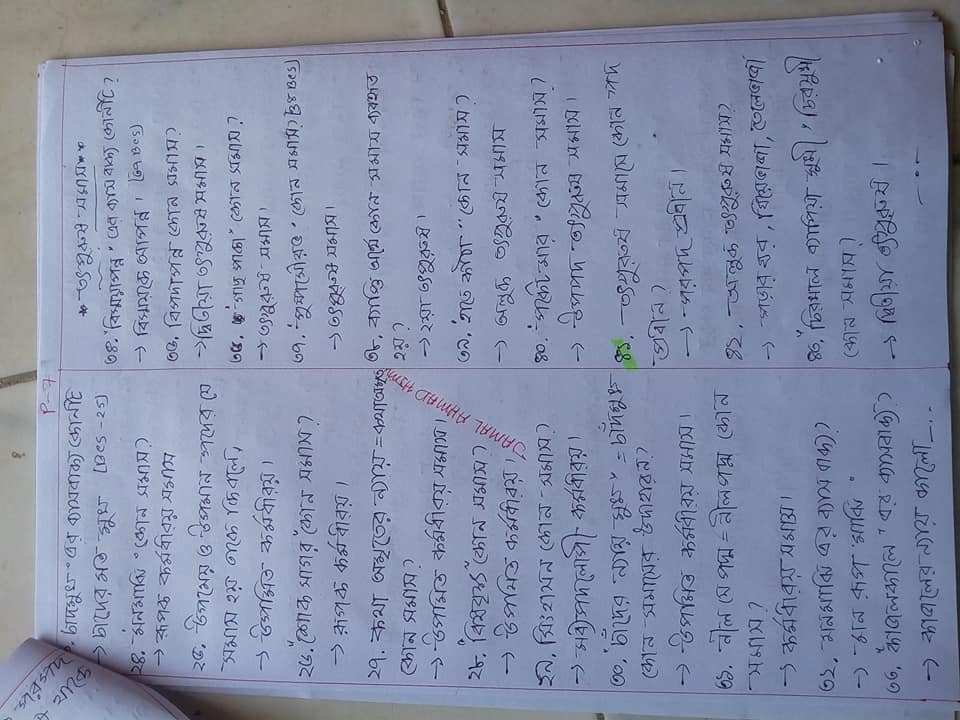 পরপদ
থাকে
P-7
চাঁদমুখ এর ব্যাসবাক্য কোনটি
→ চাঁদের মত মুখ [BCS-25]
২৪. মনমাঝি কোন সমাস?
→ রূপক কর্মধারয় সমাস
২৫. উপমেয় ও উপমান পদের যে
সমাস হয় তাকে কি বলে,
→ উপমিত কর্মধারয়।
২৬. "শোক সাগর" কোন সমাস?
→ রূপক কর্মধারয়।
২৭. কথা অমৃতের ন্যায় = কথাঅমৃত
কোন সমাস?
→ উপমিত কর্মধারয় সমাস।
২৮. কোন সমাস?
→ উপমিত কর্মধারয়।
২৯. সিংহাসন কোন সমাস?
→ মধ্যপদলোপী কর্মধারয়।
৩০. "চাঁদের ন্যায় মুখ" = চাঁদমুখ
কোন সমাসের উদাহারন?
→ উপমিত কর্মধারয় সমাস।
৩১. নীল যে পদ্ম = নীলপদ্ম কোন
সমাস?
→ কর্মধারয় সমাস।
৩২. মনমাঝি এর ব্যাস বাক্য?
→ মন রূপ মাঝি
৩৩. "কাজলকালো" এর ব্যাসবাক্য?
→ কাজলের ন্যায় কালো
JAMAL AHMAD
* তৎপুরুষ সমাস *
৩৪. "বিস্ময়াপন্ন" এর ব্যাস বাক্য কোনটি?
→ বিস্ময়কে আপন্ন। [৩৭ BCS]
৩৫. বিপদাপন্ন কোন সমাস?
→ দ্বিতীয়া তৎপুরুষ সমাস।
"গাছ পাকা" কোন সমাস?
→ তৎপুরুষ সমাস।
৩৭. "পুষ্পসৌরভ" কোন সমাস? [৩৪ BCS]
→ তৎপুরুষ সমাস।
৩৮. ব্যাপ্তি অর্থে কোন সমাস ব্যবহৃত
হয়?
→ ২য়া তৎপুরুষ।
৩৯. "হাতে কাটা" কোন সমাস?
→ অলুক তৎপুরুষ সমাস
৪০. "পকেট মার" কোন সমাস?
→ উপপদ তৎপুরুষ সমাস।
৪১. তৎপুরুষ সমাসে কোন পদ
প্রধান?
→ পরপদ প্রধান।
৪২. অলুক তৎপুরুষ সমাস?
→ পড়ার ঘর, ঘিয়েভাজা, তেলেভাজা
৪৩. চিরকাল ব্যাপিয়া সুখী, চিরসুখী
কোন সমাস?
→ দ্বিতীয়া তৎপুরুষ।